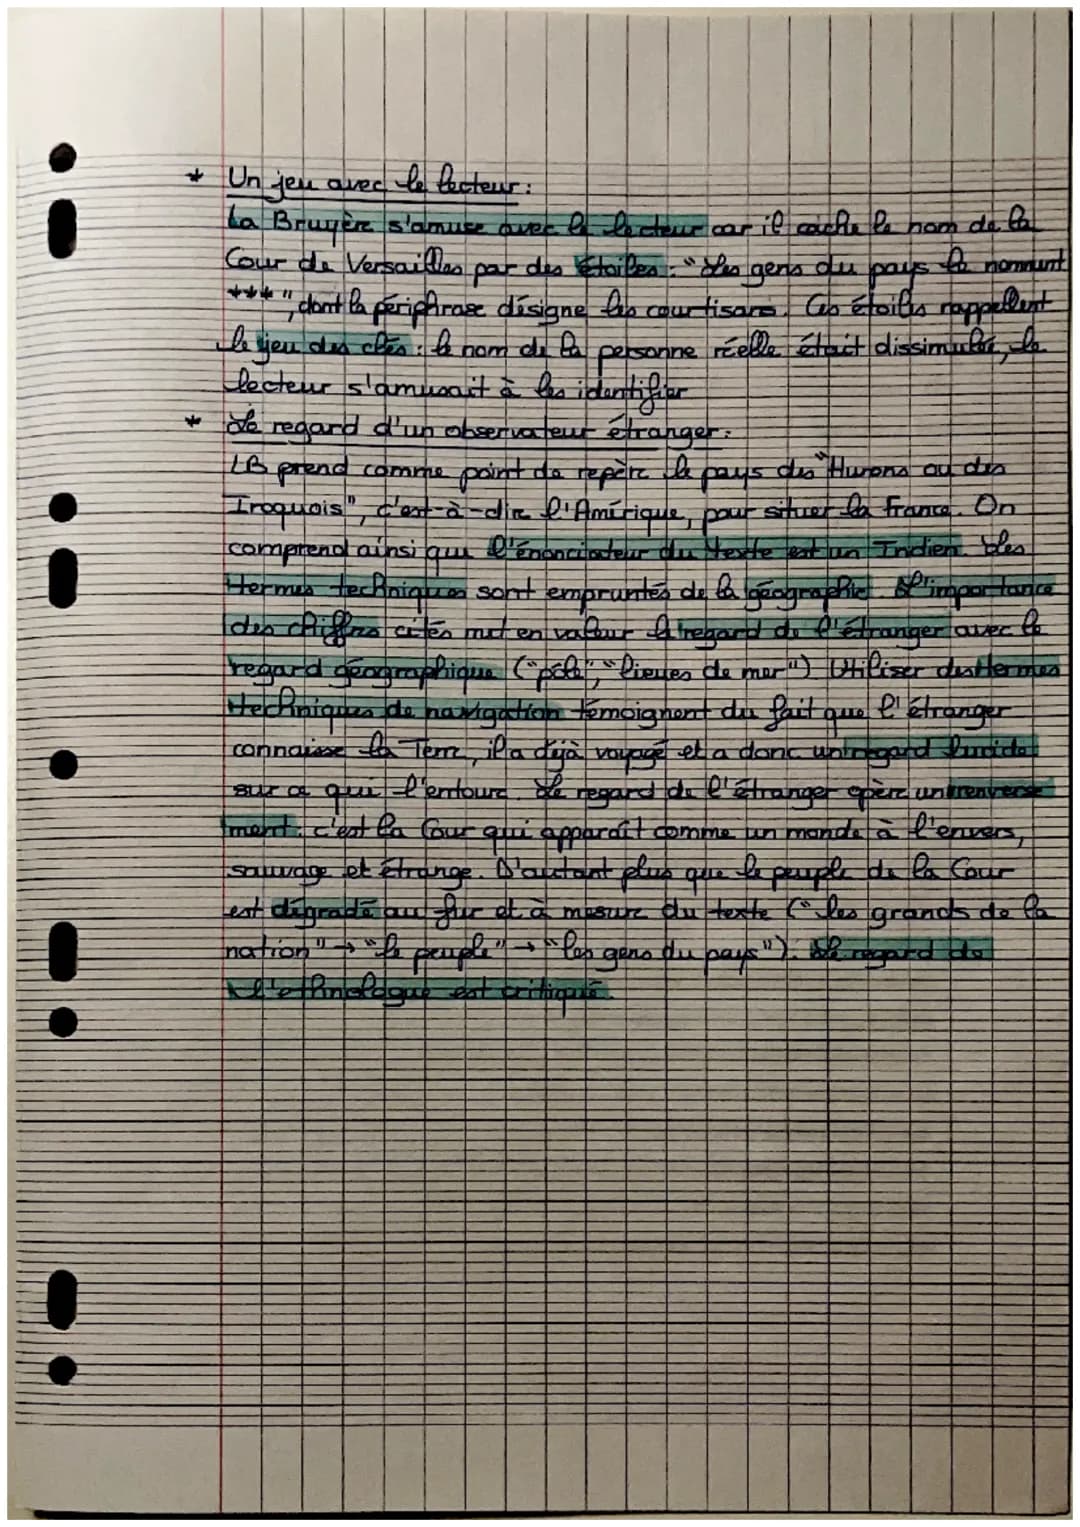 * Un jeu avec le lecteur :
La Bruyère s'amuse avec le lecteur car il cache le nom de la
Cour de Versailles par des étoiles : "Les gens du pays le nomment
***", dont la périphrase désigne les courtisans. Ces étoiles rappellent
le jeu des clés : le nom de la personne réelle était dissimulée, le
lecteur s'amusait à les identifier
* Le regard d'un observateur étranger :
LB prend comme point de repère le pays des "Hurons ou des
Iroquois", c'est-à-dire l'Amérique, pour situer la France. On
comprend ainsi que l'énonciateur du texte est un Indien. Les
termes techniques sont empruntés de la géographie. L'importance
des chiffres cités met en valeur le regard de l'étranger avec le
regard géographique ("pôle", "lieues de mer"). Utiliser des termes
techniques de navigation témoignent du fait que l'étranger
connaisse la Terre, il a déjà voyagé et a donc un regard lucide
sur ce qui l'entoure. Le regard de l'étranger opère un renverse
ment : c'est la Cour qui apparaît comme un monde à l'envers,
sauvage et étrange. D'autant plus que le peuple de la Cour
est dégradé au fur et à mesure du texte ("les grands de la
nation" → "le peuple" → "les gens du pays"). Le regard de
l'ethnologue est critiqué.